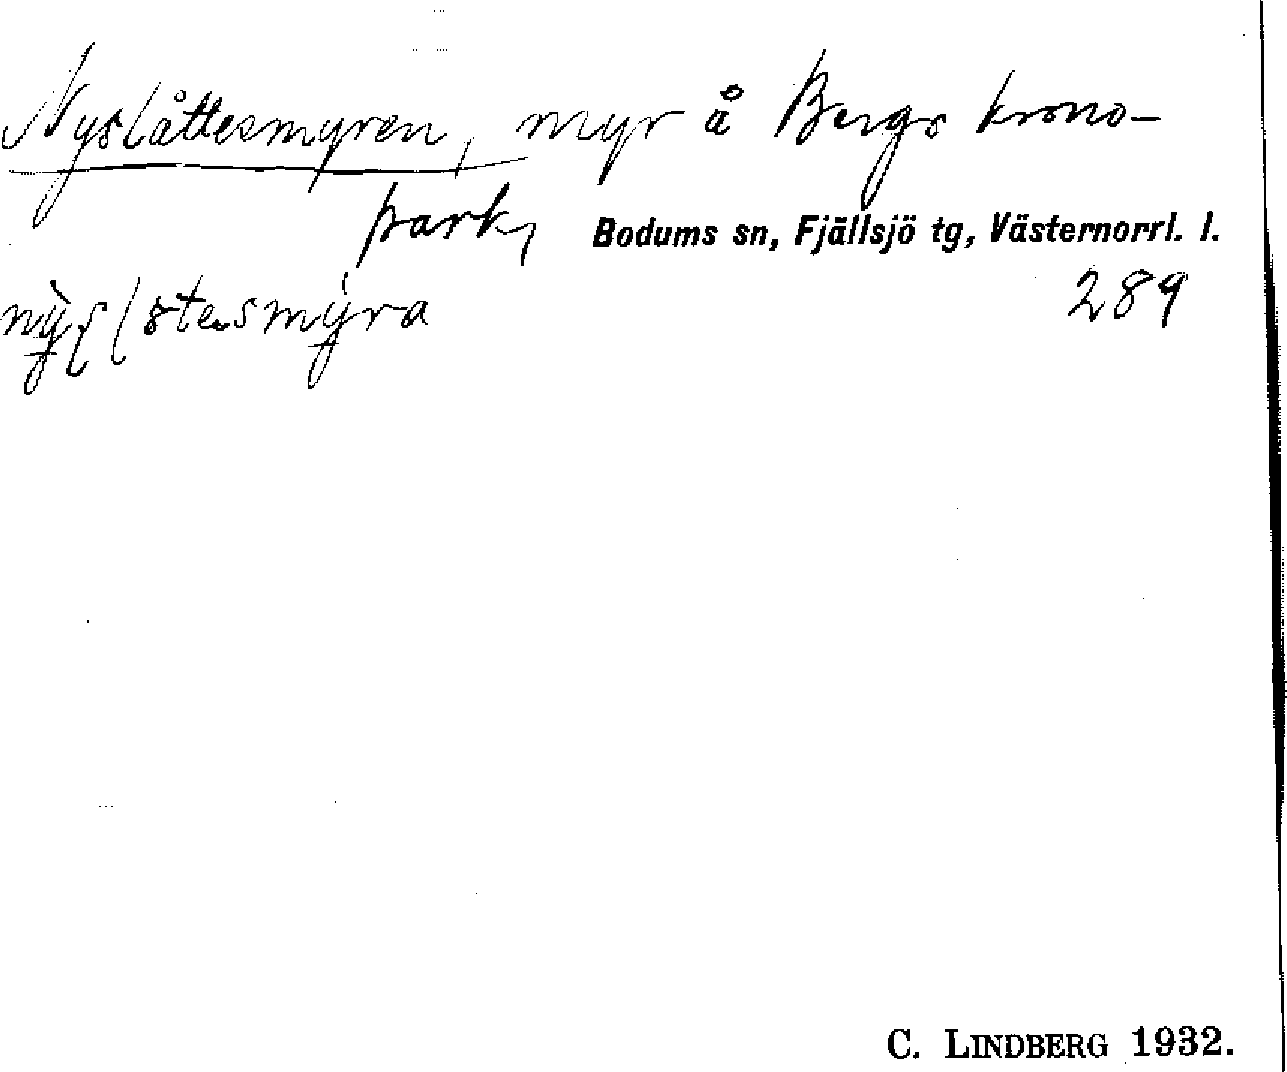 Nyslåttesmyren, myr å Bergs krono-
park, Bodums sn, Fjällsjö tg, Västernorrl. l.
289
C. LINDBERG 1932.